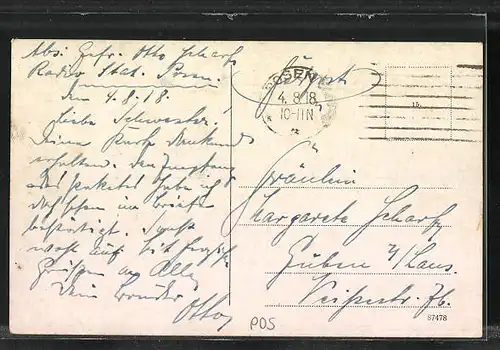 Abs. Gefr. Otto Scharf
Radio Stat. Posen.
den 4.8.18.
Liebe Schwester!
Deine Karte dankend
erhalten. Den Empfang
des Paketes habe ich
Dir schon im Briefe
bestätigt. Sonst
wohl auf. Mit herzlich
Grüßen an Alle
Dein Bruder
Otto
POSEN
4.8.18
10-11N
Feldpost
15.
Fräulein
Margarete Scharf
Guben N/Laus.
POS
87478